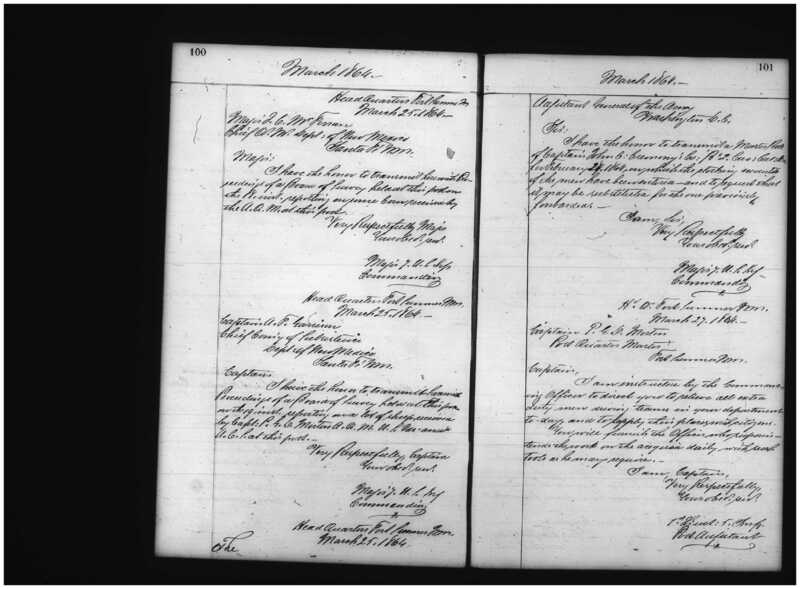 100
March 1864.—
Head Quarters Fort Sumner
March 25, 1864.—
Major J. C. McFerran
Chief Q. M. Dept. of New Mexico
Santa Fé N.M.
Major:
I have the honor to transmit herewith Pro-
ceedings of a Board of Survey held at this post on
the reporting on some corn received by
the A. Q. M. at this post.
Very Respectfully Major
Your obdt. servt.
Major 7. U.S. Inf
Commanding
Head Quarters Fort Sumner N.M.
March 25, 1864.—
Captain A. F. Garrison
Chief Comsy of Subsistence
Dept. of New Mexico
Santa Fé N.M.
Captain
I have the honor to transmit herewith
Proceedings of a Board of Survey held at this post
reporting on a lot of sheep received
by Capt. P. E. C. A. Q. M. U.S. and
A. C. S. at this post.—
Very Respectfully, Captain
Your obdt. servt.
Major 7. U.S. Inf
Commanding
Head Quarters Fort Sumner N.M.
March 25, 1864.
The
101
March 1864.—
Adjutant General of the Army
Washington D.C.
Sir:
I have the honor to transmit a Muster Roll
of Captain John C. Cremony's Co. "B" 2. Cav.
for February 1864, on which the
of the men have been entered — and to request that
it may be substituted for the one previously
forwarded.—
I am, Sir,
Very Respectfully
Your obdt. servt.
Major 7. U.S. Inf
Commanding
Hd. Qrs. Fort Sumner N.M.
March 27. 1864.—
Captain P.
Post Quarter Master
Fort Sumner N.M.
Captain,
I am instructed by the Command-
ing Officer to direct you to relieve all extra
duty men driving teams in your department
to-day and to supply their places with citizens.
You will furnish the Officer, who superin-
tends the work on the acequia daily, with such
tools as he may require.—
I am, Captain,
Very Respectfully,
Your obdt. servt.
1st Lieut: 5. Infy.
Post Adjutant